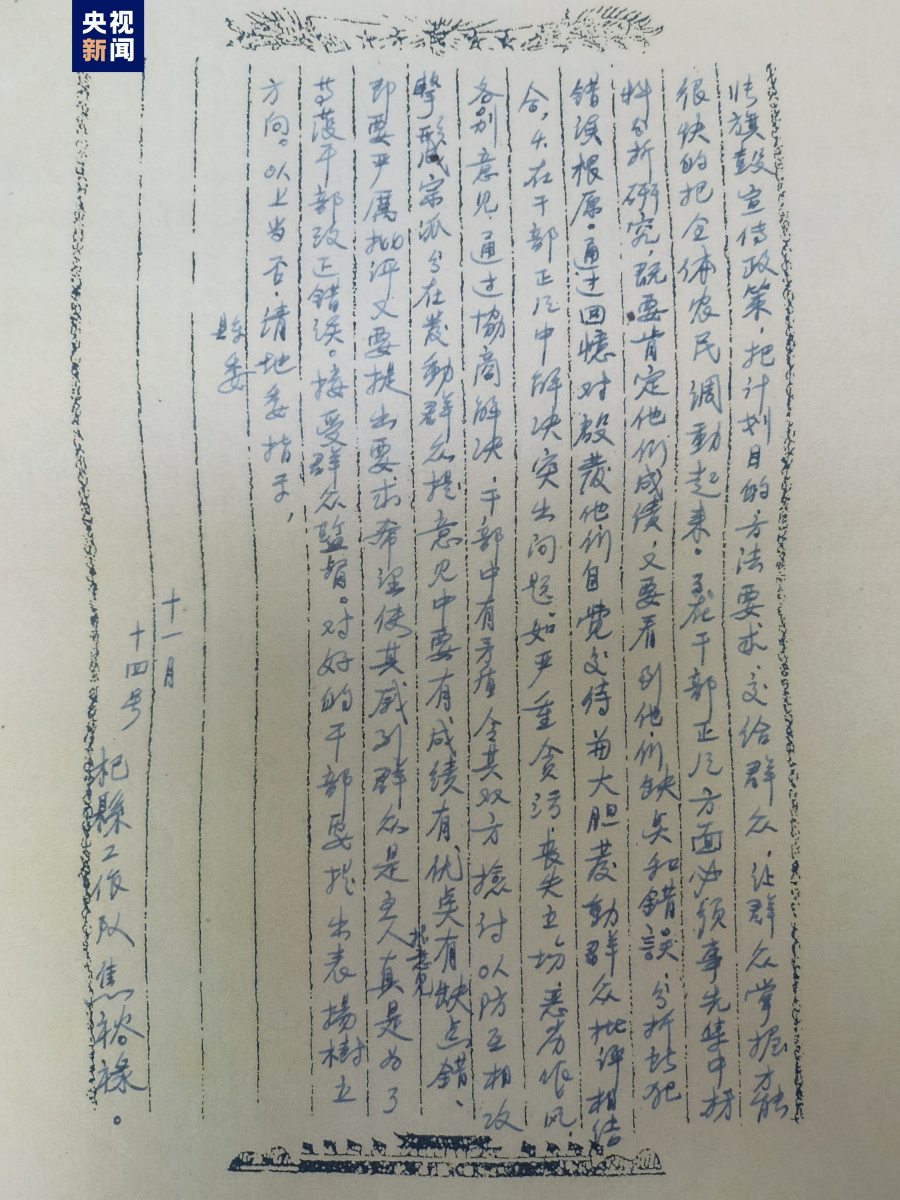 央视
新闻
旗鼓宣传政策，把计划目的方法要求，交给群众，让群众掌握才能
很快的把全体农民调動起来。3.在干部正风方面必须事先集中材
料分析研究，既要肯定他们成绩，又要看到他们缺点和錯誤，分析其犯
错误根原。通过回憶对啟發他们自觉交待並大胆發動群众批评相结
合，4.在干部正风中解决突出问题。如严重贪污丧失立场恶劣作风，
各别意见，通过協商解决，干部中有矛盾令其双方检讨以防互相攻
擊形成宗派，5.在發動群众提意见中要有成绩有优点有缺点错、
提意见
即要严厲批评又要提出要求希望使其感到群众是主人真是为了
干部改正错误。接受群众监督。对好的干部要提出表揚樹立
方向。以上当否，请地委指示，
縣委
十一月
十四号
杞縣工作队焦裕禄。